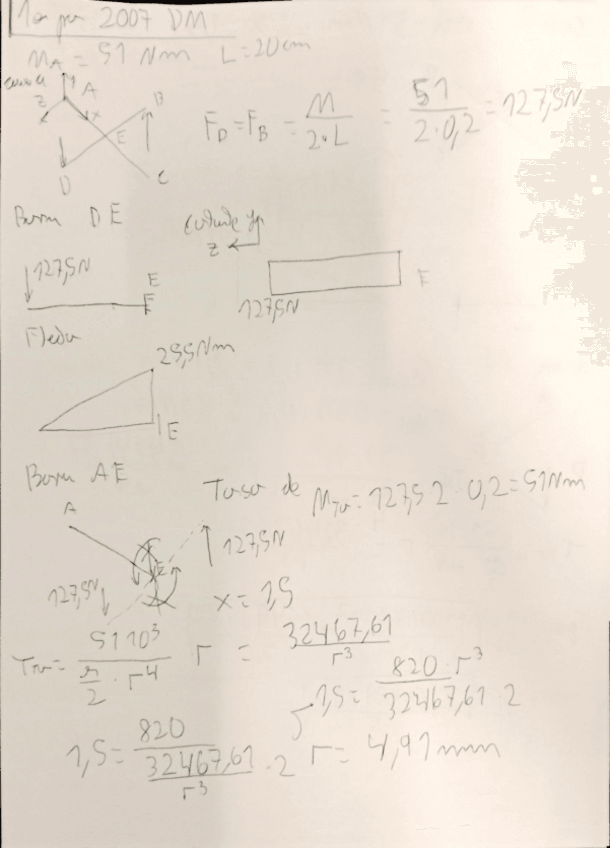 1er per 2007 DM
MA = 51 Nm L = 20cm
y A
z x B
E
D C
FD = FB = M / 2·L = 51 / 2·0,2 = 127,5N
Barra DE
Cortante yp
z
127,5N E
127,5N E
Flector
25,5Nm
E
Barra AE
Torsor de MTor = 127,5 2 · 0,2 = 51Nm
A
E 127,5N
127,5N
x = 1,5
51 10³ / π/2 · r⁴ r = 32467,61 / r³
1,5 = 820 · r³ / 32467,61 2
1,5 = 820 / 32467,61 / r³ · 2 r = 4,91mm